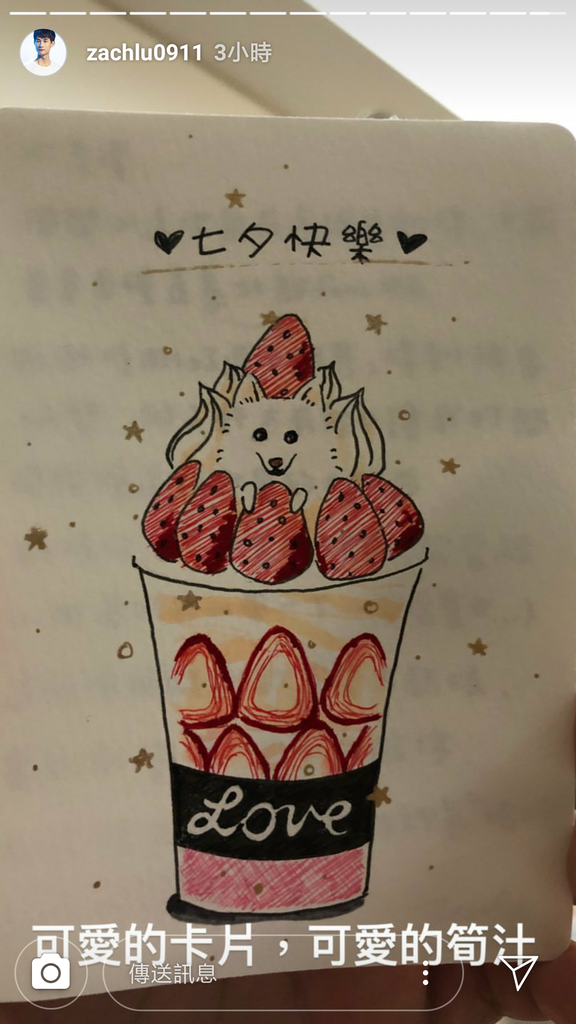 zachlu0911 3小時
七夕快樂
Love
可愛的卡片，可愛的筍汁
傳送訊息